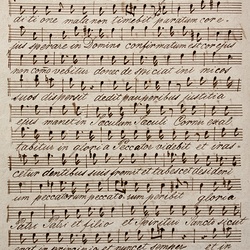 ditione mala non timebit paratum cor e
jus sperare in Domino confirmatum est cor ejus
non como vebitur donec despeciat ini micos
suos dispersit dedit pauperibus justitia
ejus manet in Saeculum Saeculi Cornu exal
tabitur in gloria Peccator videbit et iras
cetur dentibus suis fremet et tabescet desideri
um peccatorum peccato rum peribit gloria
Patri Patri et filio et Spiritui Sancto sicut
erat in principio et nunc et semper et in